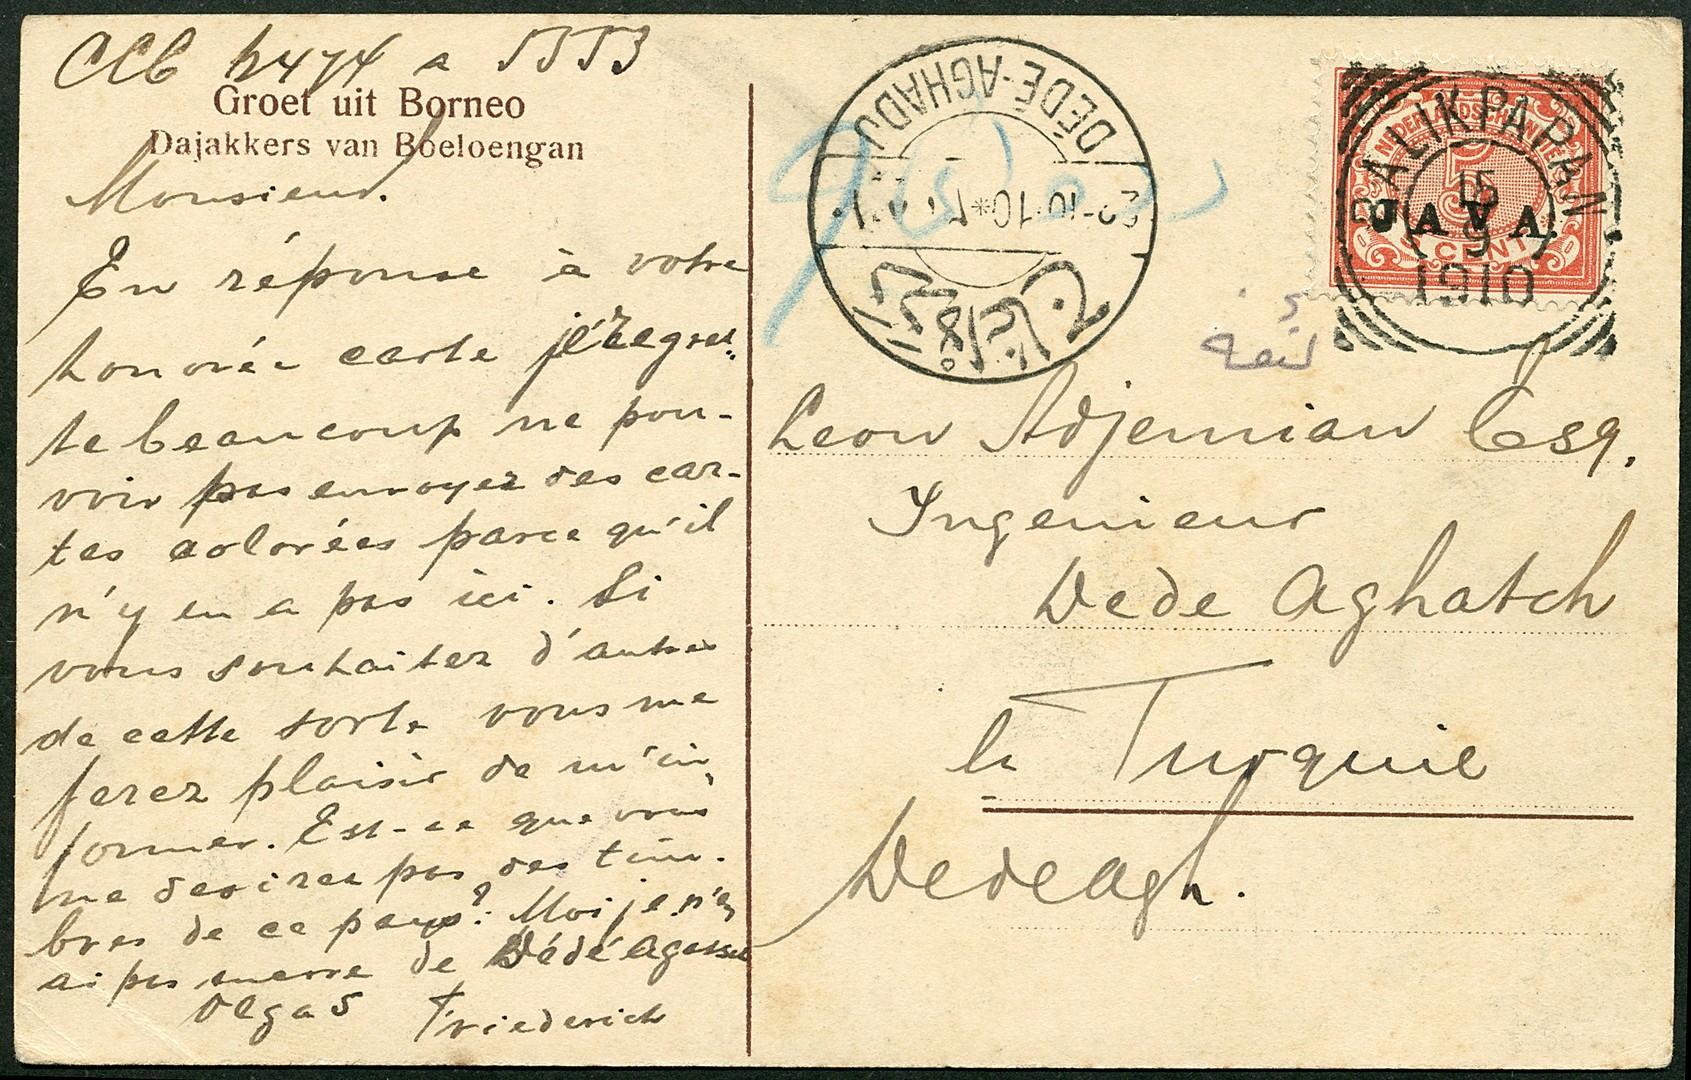 CCC
Groet uit Borneo
Dajakkers van Boeloengan
Monsieur.
En réponse à votre
honorée carte je regret-
te beaucoup ne pou-
voir pas envoyez des car-
tes colorées parce qu'il
n'y en a pas ici. Si
vous souhaitez d'autres
de cette sorte vous me
ferez plaisir de m'in
former. Est-ce que vous
ne desirez pas des tim-
bres de ce pays? Moi je n'en
ai pas encore de Dédé Agatsch
Olgas Friederich
DÉDÉ-AGHADJ
22-10-10*
دده اغاج
NEDERLANDSCH-INDIË
5
JAVA.
5 CENT
BALIKPAPAN
15
9
1910
Leon Adjemian Esq.
Ingenieur
Dede Aghatch
la Turquie
Dedeagh.